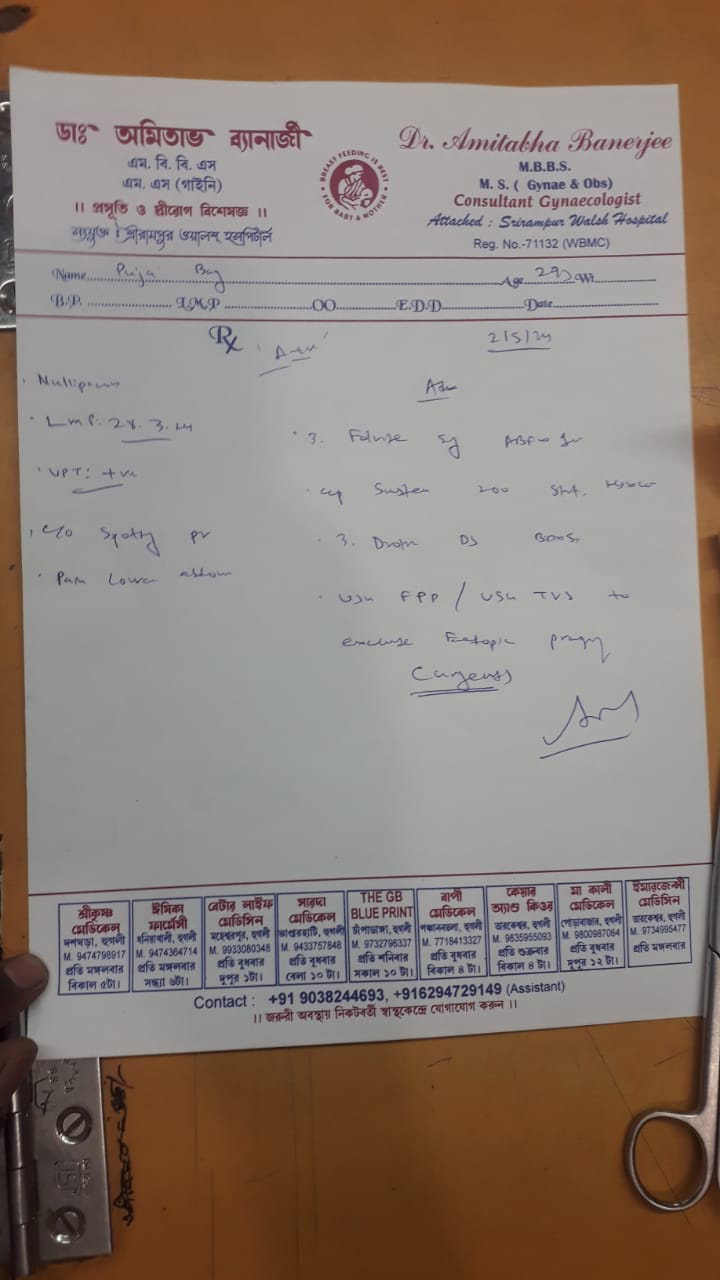 ডাঃ অমিতাভ ব্যানার্জী
এম. বি. বি. এস
এম. এস (গাইনি)
।। প্রসূতি ও স্ত্রীরোগ বিশেষজ্ঞ ।।
সংযুক্ত : শ্রীরামপুর ওয়ালস হসপিটাল
BREAST FEEDING IS BEST FOR BABY & MOTHER
Dr. Amitabha Banerjee
M.B.B.S.
M. S. ( Gynae & Obs)
Consultant Gynaecologist
Attached : Srirampur Walsh Hospital
Reg. No.-71132 (WBMC)
Name Puja Bag Age 29 Wt
B.P. L.M.P OO E.D.D Date
Rx
2/5/24
Nullipara
LMP: 28.3.24
UPT: +ve
c/o Spotting PV
Pain Lower abdom
Adv
Cap Susten 200
USG FPP / USG TVS to
exclude Ectopic pregy
(urgent)
শ্রীকৃষ্ণ মেডিকেল
দশঘড়া, হুগলী
M. 9474798917
প্রতি মঙ্গলবার
বিকাল ৫টা।
ঈশিকা ফার্মেসী
ধনিয়াখালী, হুগলী
M. 9474364714
প্রতি মঙ্গলবার
সন্ধ্যা ৬টা।
বেটার লাইফ মেডিসিন
মহেশ্বরপুর, হুগলী
M. 9933080348
প্রতি বুধবার
দুপুর ১টা।
সারদা মেডিকেল
হুগলী
M. 9433757848
প্রতি বুধবার
বেলা ১০ টা।
THE GB
BLUE PRINT
চাঁপাডাঙ্গা, হুগলী
M. 9732796337
প্রতি শনিবার
সকাল ১০ টা।
বাপী মেডিকেল
হুগলী
M. 7718413327
প্রতি বুধবার
বিকাল ৪ টা।
কেয়ার অ্যান্ড কিওর
তারকেশ্বর, হুগলী
M. 9635955093
প্রতি শুক্রবার
বিকাল ৪ টা।
মা কালী মেডিকেল
হুগলী
M. 9800987064
প্রতি বুধবার
দুপুর ১২ টা।
ইমারজেন্সী মেডিসিন
তারকেশ্বর, হুগলী
M. 9734995477
প্রতি মঙ্গলবার
Contact : +91 9038244693, +916294729149 (Assistant)
।। জরুরী অবস্থায় নিকটবর্তী স্বাস্থ্যকেন্দ্রে যোগাযোগ করুন ।।